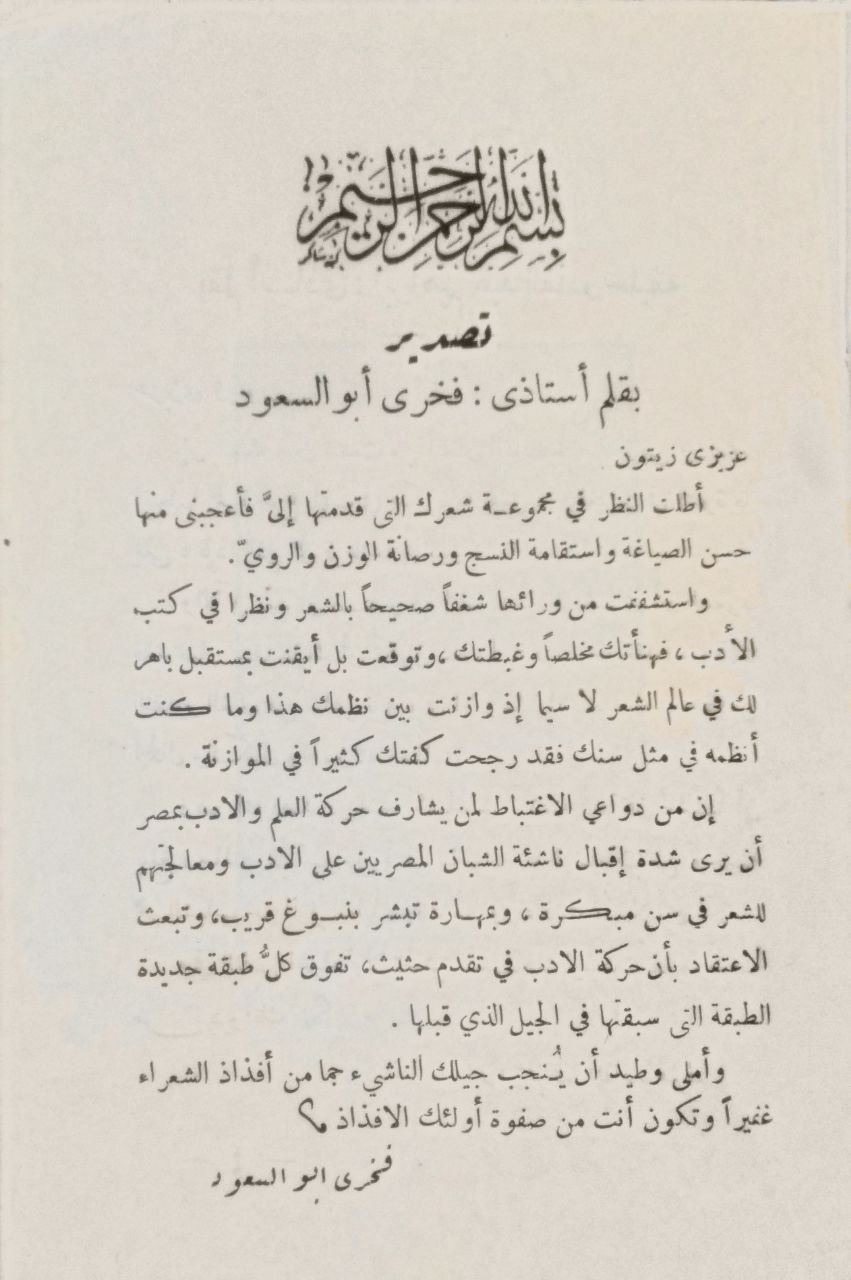 بسم الله الرحمن الرحيم
تصدير
بقلم أستاذى : فخرى أبو السعود
عزيزى زيتون
أطلت النظر في مجموعـة شعرك التى قدمتها إلىَّ فأعجبنى منها
حسن الصياغة واستقامة النسج ورصانة الوزن والرويّ.
واستشففت من ورائها شغفاً صحيحاً بالشعر ونظرا في كتب
الأدب، فهنأتك مخلصاً وغبطتك، وتوقعت بل أيقنت بمستقبل باهر
لك في عالم الشعر لا سيما إذ وازنت بين نظمك هذا وما كنت
أنظمه في مثل سنك فقد رجحت كفتك كثيراً في الموازنة .
إن من دواعي الاغتباط لمن يشارف حركة العلم والادب بمصر
أن يرى شدة إقبال ناشئة الشبان المصريين على الادب ومعالجتهم
للشعر في سن مبكرة ، وبمهـارة تبشر بنبـوغ قريب، وتبعث
الاعتقاد بأن حركة الادب في تقدم حثيث، تفوق كلُّ طبقة جديدة
الطبقة التى سبقتها في الجيل الذي قبلها .
وأملى وطيد أن يُنجب جيلك الناشيء جما من أفذاذ الشعراء
غفيراً وتكون أنت من صفوة أولئك الافذاذ
فخرى ابو السعود